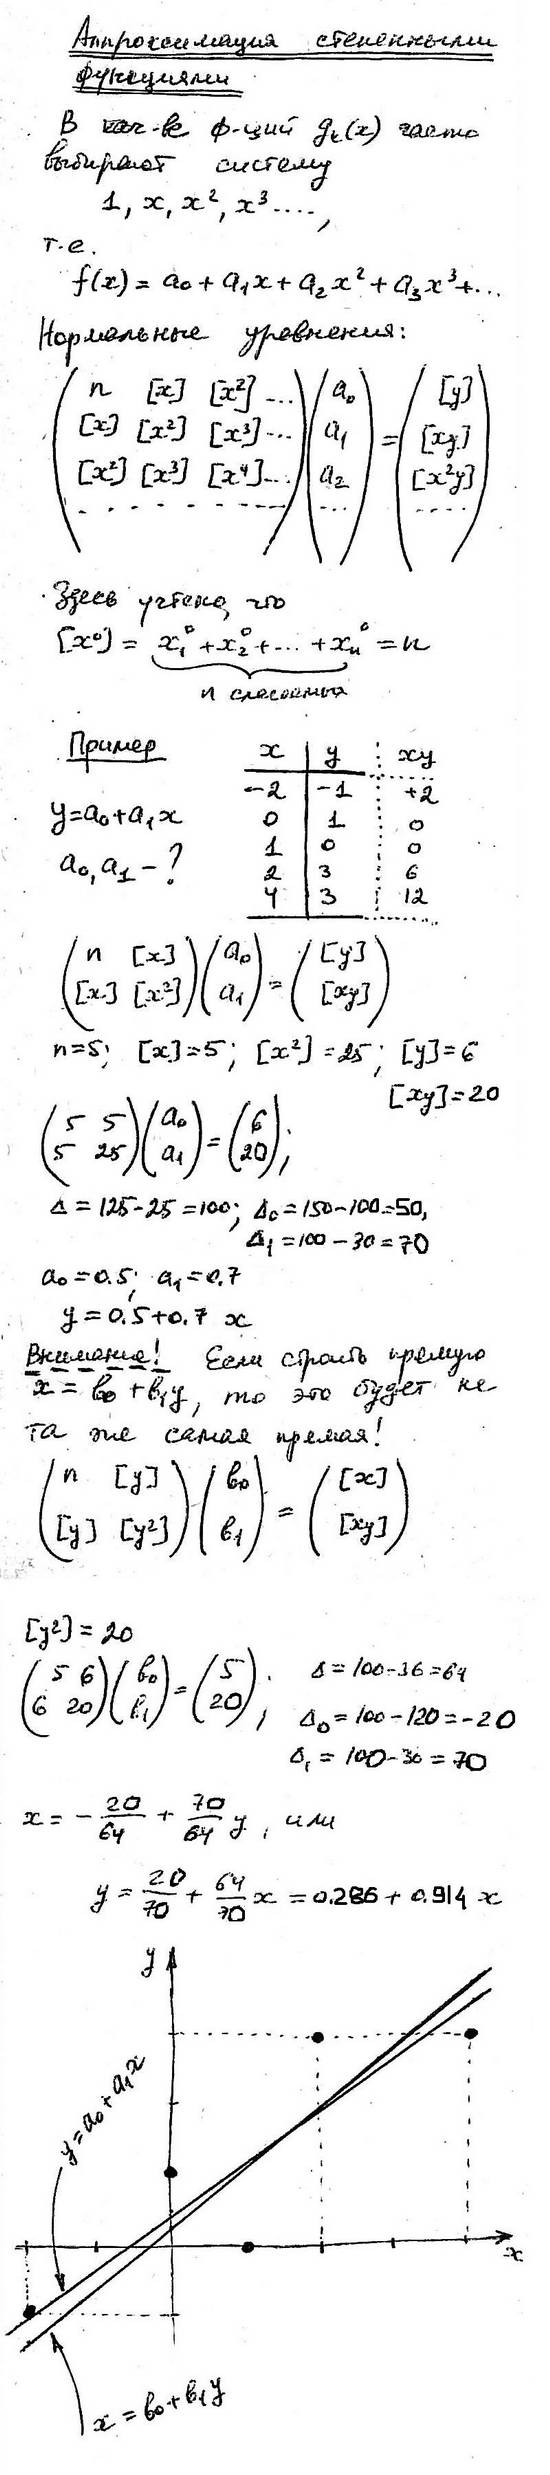 Аппроксимация степенными
функциями
В кач-ве ф-ций gₖ(x) часто
выбирают систему
1, x, x², x³ ....,
т.е.
f(x) = a₀ + a₁x + a₂x² + a₃x³+...
Нормальные уравнения:
n [x] [x²] ... a₀ [y]
[x] [x²] [x³] ... a₁ = [xy]
[x²] [x³] [x⁴] ... a₂ [x²y]
. . . . . . . . . . .... ....
Здесь учтено, что
[x⁰] = x₁⁰ + x₂⁰ + ... + xₙ⁰ = n
n слагаемых
Пример
x y xy
-2 -1 +2
y=a₀+a₁x
0 1 0
1 0 0
a₀, a₁ - ?
2 3 6
4 3 12
(n [x]) (a₀) = ([y])
([x] [x²]) (a₁) ([xy])
n=5; [x]=5; [x²]=25; [y]=6
[xy]=20
(5 5) (a₀) = (6)
(5 25) (a₁) (20);
Δ = 125-25 = 100; Δ₀ = 150-100=50,
Δ₁ = 100-30 = 70
a₀ = 0.5; a₁ = 0.7
y = 0.5+0.7 x
Внимание! Если строить прямую
x = b₀ + b₁y, то это будет не
та же самая прямая!
(n [y]) (b₀) = ([x])
([y] [y²]) (b₁) ([xy])
[y²] = 20
(5 6) (b₀) = (5); Δ = 100-36 = 64
(6 20) (b₁) (20) Δ₀ = 100-120 = -20
Δ₁ = 100-30 = 70
x = - 20/64 + 70/64 y, или
y = 20/70 + 64/70 x = 0.286 + 0.914 x
y
y=a₀+a₁x
x
x = b₀+b₁y